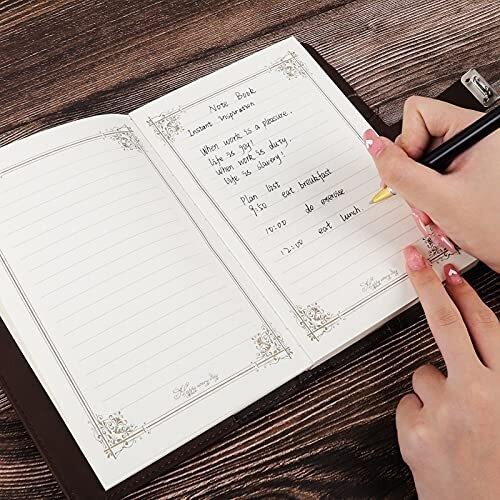 Note Book
Instant Inspiration
When work is a pleasure.
life is joy!
When work is duty.
life is slavery!
Plan list
9:50 eat breakfast
10:00 do exercise
12:00 eat lunch.